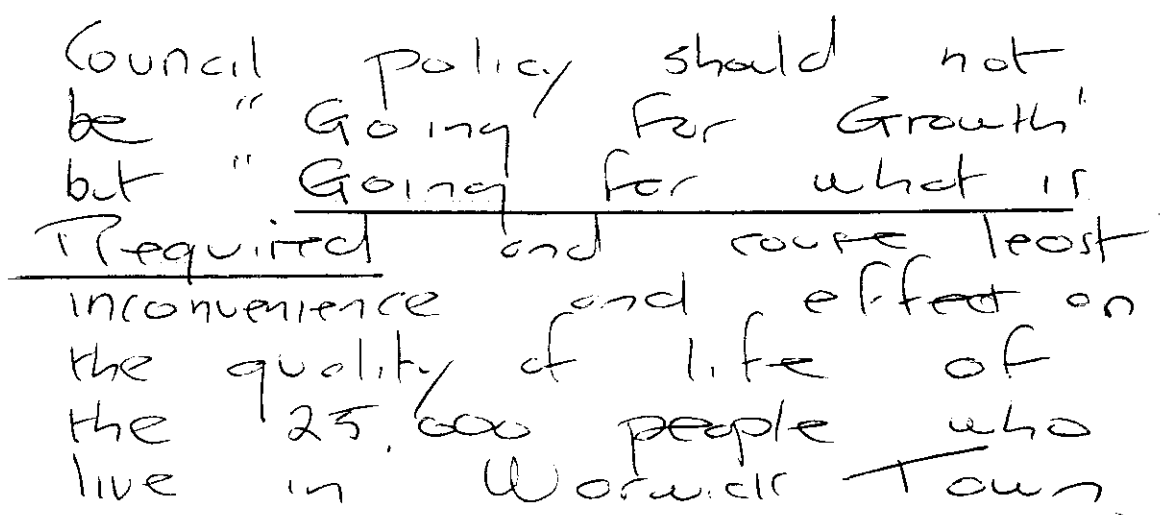 Council policy should not
be "Going For Growth"
but "Going for what is
Required and cause least
inconvenience and effect on
the quality of life of
the 25,000 people who
live in Warwick Town.